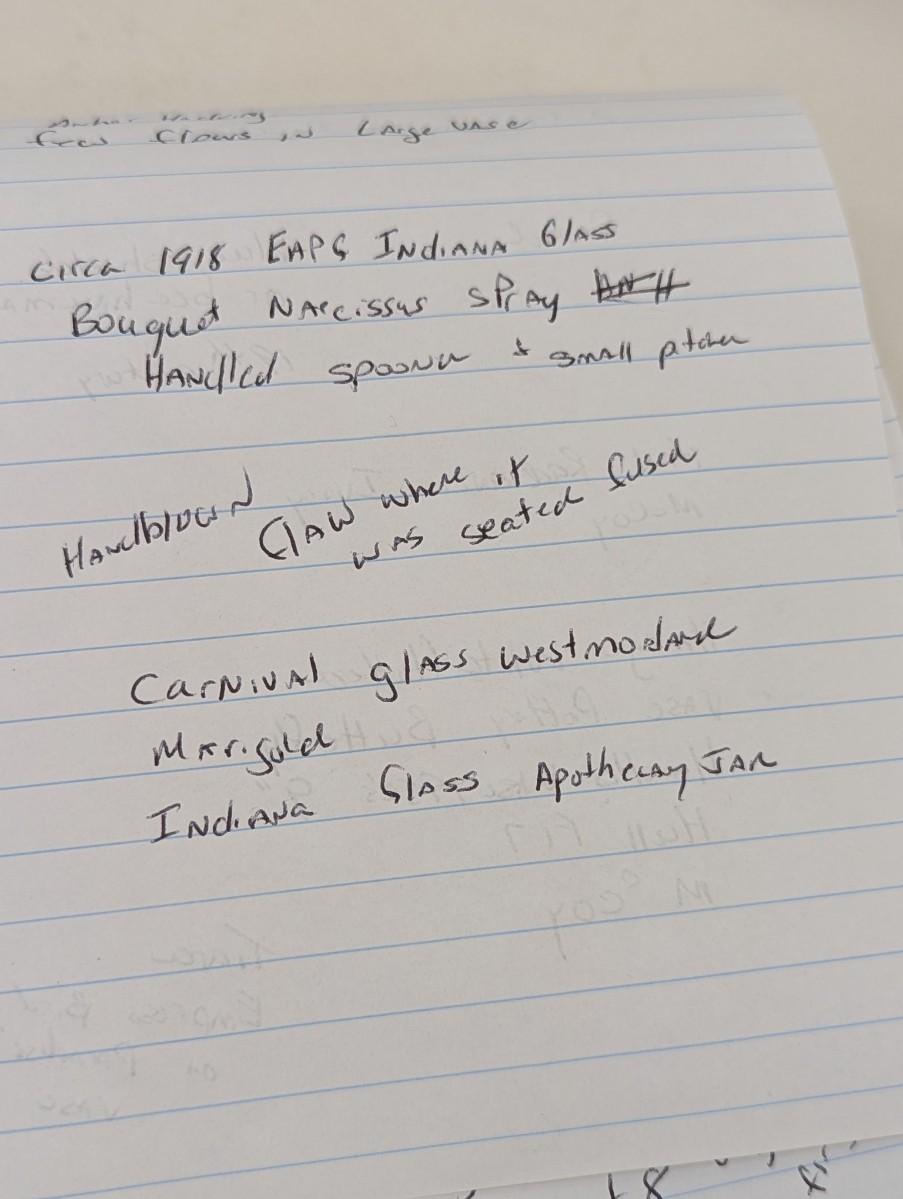 in Large vase
Circa 1918 EAPG Indiana Glass
Bouquet Narcissus Spray
Handled spooner & small pitcher
Handblown
Claw where it
was seated fused
Carnival glass westmorland
Marigold
Indiana Glass Apothecay Jar